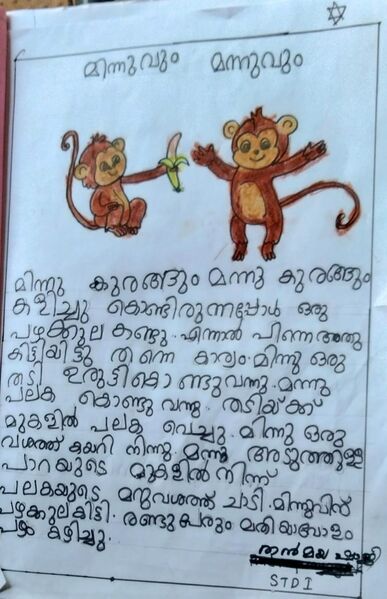 മിന്നുവും മന്നുവും
മിന്നു കുരങ്ങും മന്നു കുരങ്ങും
കളിച്ചു കൊണ്ടിരുന്നപ്പോൾ ഒരു
പഴക്കുല കണ്ടു. എന്നാൽ പിന്നെ അതു
കിട്ടിയിട്ടു തന്നെ കാര്യം. മിന്നു ഒരു
തടി ഉരുട്ടികൊണ്ടുവന്നു. മന്നു
പലക കൊണ്ടു വന്നു. തടിയ്ക്ക്
മുകളിൽ പലക വെച്ചു. മിന്നു ഒരു
വശത്ത് കയറി നിന്നു. മന്നു അടുത്തുള്ള
പാറയുടെ മുകളിൽ നിന്ന്
പലകയുടെ മറുവശത്ത് ചാടി. മിന്നുവിന്
പഴക്കുലകിട്ടി. രണ്ടുപേരും മതിയാവോളം
പഴം കഴിച്ചു.
തന്മയ ഷാജി
STD I